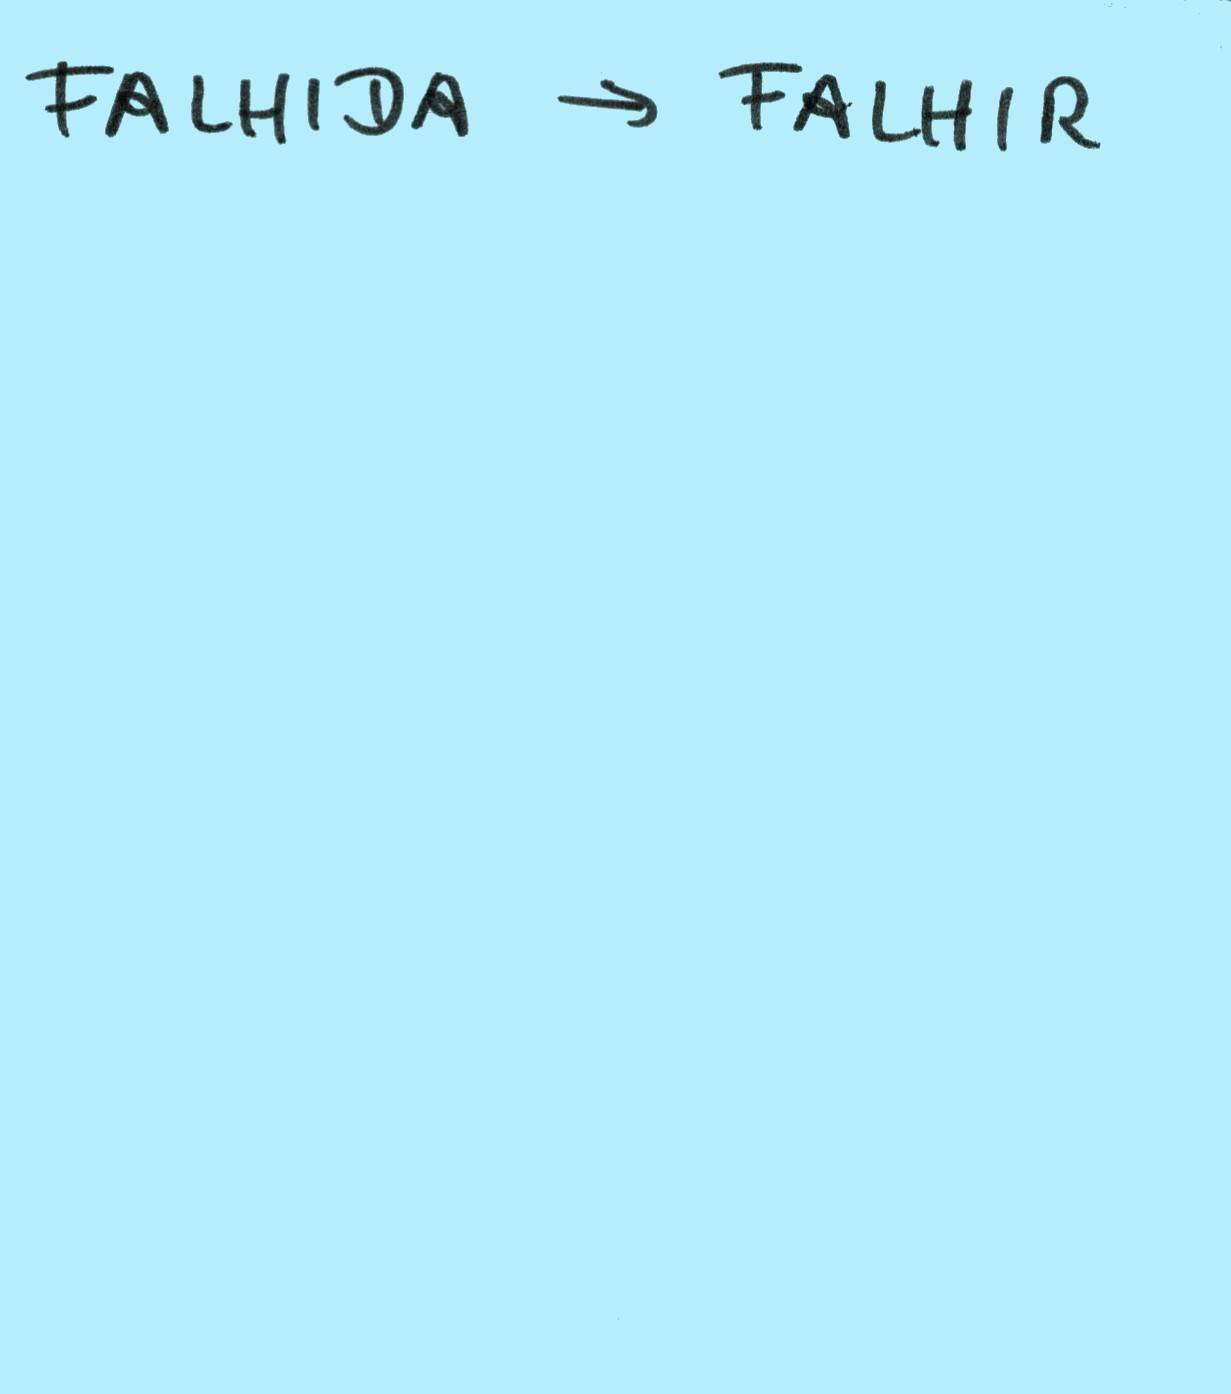 FALHIDA → FALHIR